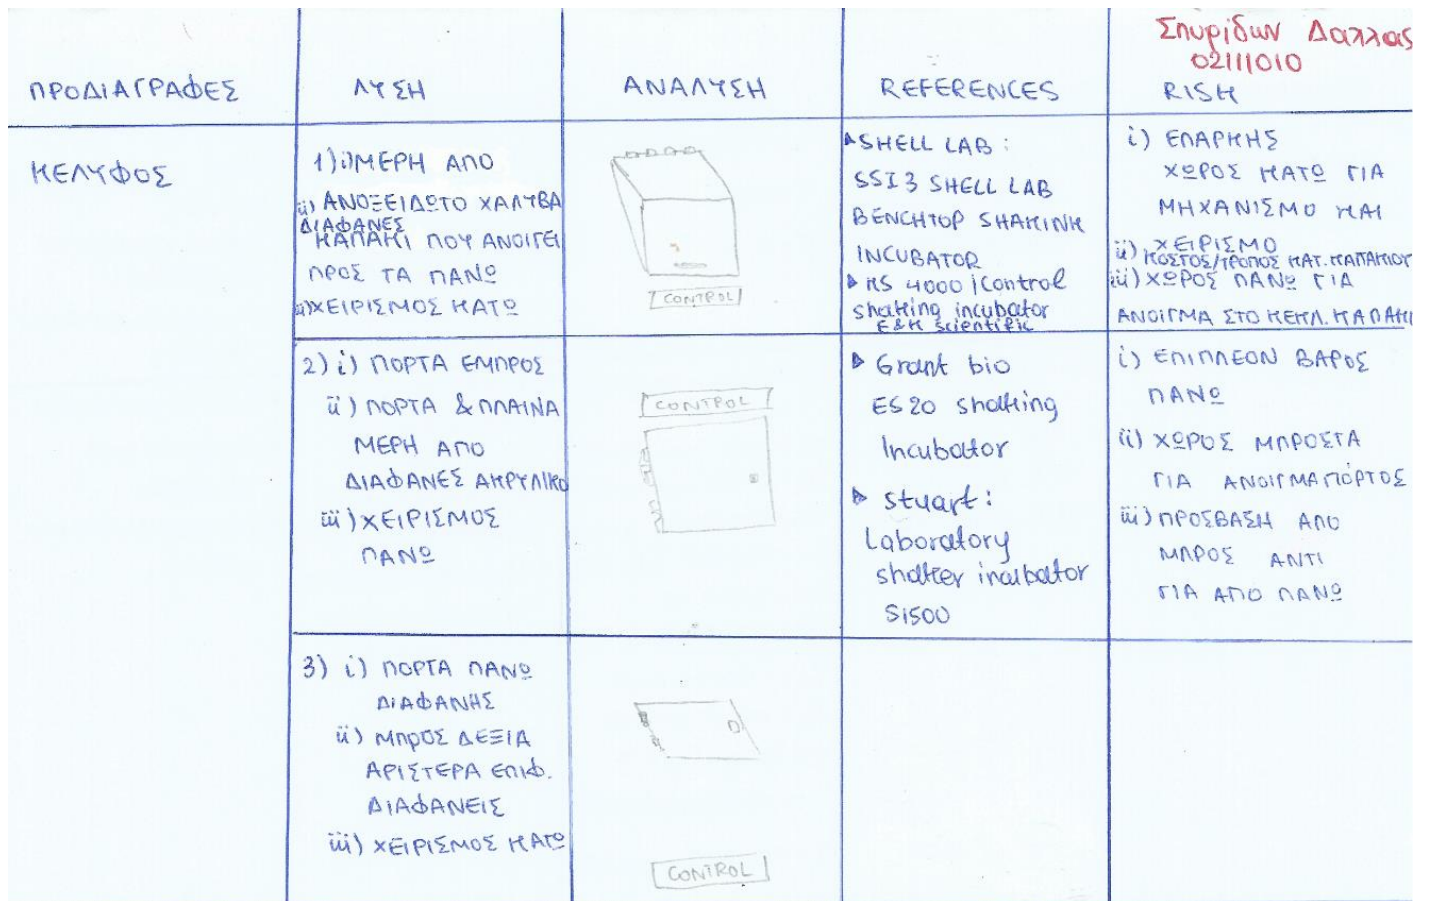 Σπυρίδων Δαλλας
02111010
ΠΡΟΔΙΑΓΡΑΦΕΣ
ΛΥΣΗ
ΑΝΑΛΥΣΗ
REFERENCES
RISK
ΚΕΛΥΦΟΣ
1) i) ΜΕΡΗ ΑΠΟ
ΑΝΟΞΕΙΔΩΤΟ ΧΑΛΥΒΑ
ii) ΔΙΑΦΑΝΕΣ
ΚΑΠΑΚΙ ΠΟΥ ΑΝΟΙΓΕΙ
ΠΡΟΣ ΤΑ ΠΑΝΩ
iii) ΧΕΙΡΙΣΜΟΣ ΚΑΤΩ
CONTROL
SHELL LAB:
SSI3 SHELL LAB
BENCHTOP SHAKINK
INCUBATOR
KS 4000 i Control
shaking incubator
E&K Scientific
i) ΕΠΑΡΚΗΣ
ΧΩΡΟΣ ΚΑΤΩ ΓΙΑ
ΜΗΧΑΝΙΣΜΟ ΚΑΙ
ΧΕΙΡΙΣΜΟ
ii) ΚΟΣΤΟΣ/ΤΡΟΠΟΣ ΚΑΤ. ΚΑΠΑΚΙΟΥ
iii) ΧΩΡΟΣ ΠΑΝΩ ΓΙΑ
ΑΝΟΙΓΜΑ ΣΤΟ ΚΕΚΛ. ΚΑΠΑΚΙ
2) i) ΠΟΡΤΑ ΕΜΠΡΟΣ
ii) ΠΟΡΤΑ & ΠΛΑΙΝΑ
ΜΕΡΗ ΑΠΟ
ΔΙΑΦΑΝΕΣ ΑΚΡΥΛΙΚΟ
iii) ΧΕΙΡΙΣΜΟΣ
ΠΑΝΩ
CONTROL
Grant bio
ES20 shaking
Incubator
stuart:
Laboratory
shaker incubator
SI500
i) ΕΠΙΠΛΕΟΝ ΒΑΡΟΣ
ΠΑΝΩ
ii) ΧΩΡΟΣ ΜΠΡΟΣΤΑ
ΓΙΑ ΑΝΟΙΓΜΑ ΠΟΡΤΟΣ
iii) ΠΡΟΣΒΑΣΗ ΑΠΟ
ΜΠΡΟΣ ΑΝΤΙ
ΓΙΑ ΑΠΟ ΠΑΝΩ
3) i) ΠΟΡΤΑ ΠΑΝΩ
ΔΙΑΦΑΝΗΣ
ii) ΜΠΡΟΣ ΔΕΞΙΑ
ΑΡΙΣΤΕΡΑ ΕΠΙΦ.
ΔΙΑΦΑΝΕΙΣ
iii) ΧΕΙΡΙΣΜΟΣ ΚΑΤΩ
CONTROL